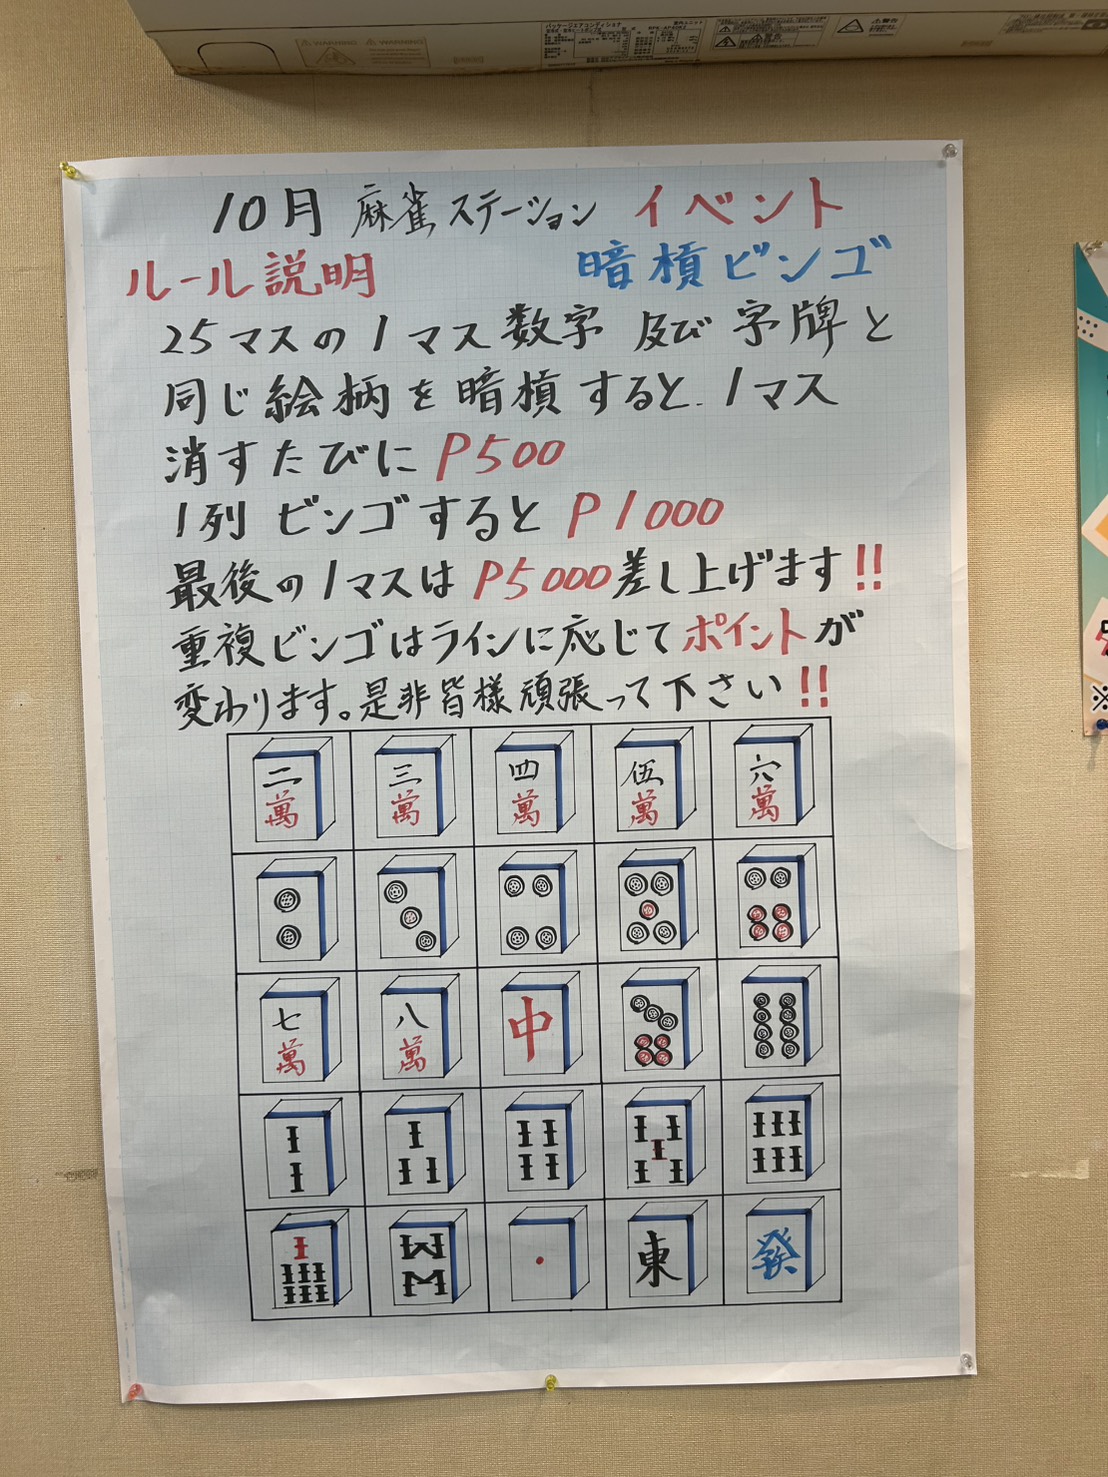 WARNING
WARNING
10月 麻雀ステーション イベント
ルール説明 暗槓ビンゴ
25マスの1マス数字 及び 字牌と
同じ絵柄を暗槓すると、1マス
消すたびに P500
1列 ビンゴすると P1000
最後の1マスは P5000差し上げます!!
重複ビンゴはラインに応じてポイントが
変わります。是非皆様頑張って下さい!!
二萬 三萬 四萬 伍萬 六萬
七萬 八萬 中
東 發
※